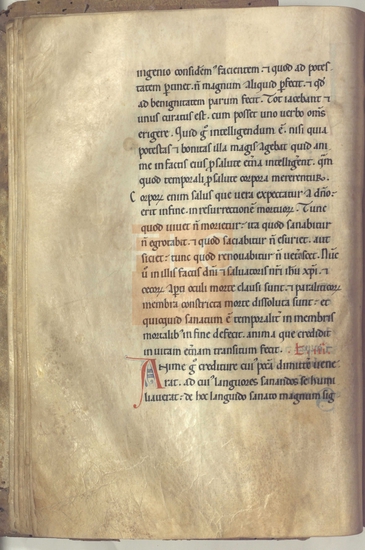 ingenio consideretur facientem. ⁊ quod ad potes
tatem ꝑtinet. n̄ magnum aliquid ꝑfecit. ⁊ qd̄
ad benignitatem parum fecit. Tot iacebant ⁊
unus curatus est. cum posset uno verbo om̄s
erigere. Quid ḡ intelligendum ē. nisi quia
potestas ⁊ bonitas illa magis agebat quid ani
me in factis eius ꝓ salute et̄na intelligerent. qm̄
quod temporali ꝓ salute corpora mererentur.
Corporꝝ enim salus que vera expectatur a dn̄o.
erit in fine. in resurrectione mortuoꝝ. Tunc
quod uiuet n̄ morietur. ⁊ quod sanabitur
n̄ egrotabit. ⁊ quod saciabitur n̄ esuriet. aut
siciet. tunc quod renouabitur n̄ ueterascet. Nūc
ū in illis factis dn̄i ⁊ saluatoris nr̄i ihū xp̄i. ⁊
cecoꝝ apti oculi morte clausi sunt. ⁊ paraliticoꝝ
membra constricta morte dissoluta sunt. et
quicquid sanatum ē temporalit̄ in membris
mortalib; in fine defecit. anima que credidit
in uitam et̄nam transitum fecit.
Anime ḡ crediture cui pccā dimittē uene
rat. ad cui' languores sanandos se humi
liauerat. de hoc languido sanato magnum sig